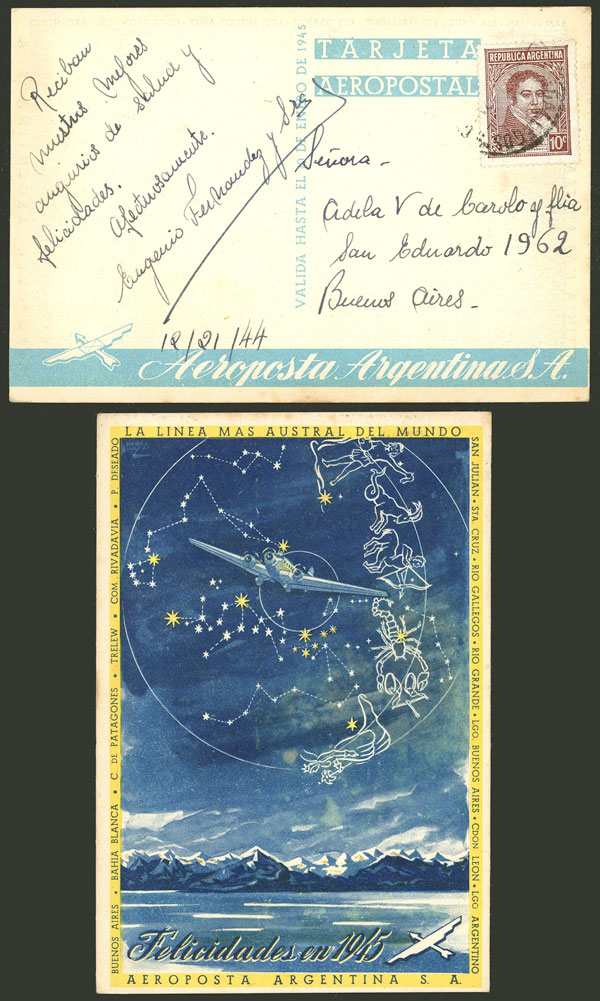 Reciban
nuestros mejores
augurios de salud y
felicidades.
Afectuosamente.
Eugenio Fernandez y Sra
12/21/44
VALIDA HASTA EL DE ENERO DE 1945
TARJETA
AEROPOSTAL
REPUBLICA ARGENTINA
10c
Señora -
Adela V de Carolo y flia
San Eduardo 1962
Buenos Aires -
Aeroposta Argentina S.A.
LA LINEA MAS AUSTRAL DEL MUNDO
BUENOS AIRES • BAHIA BLANCA • C. DE PATAGONES • TRELEW • COM. RIVADAVIA • P. DESEADO
SAN JULIAN • STA CRUZ • RIO GALLEGOS • RIO GRANDE • LGO. BUENOS AIRES • CDON LEON • LGO ARGENTINO
Felicidades en 1945
AEROPOSTA ARGENTINA S. A.